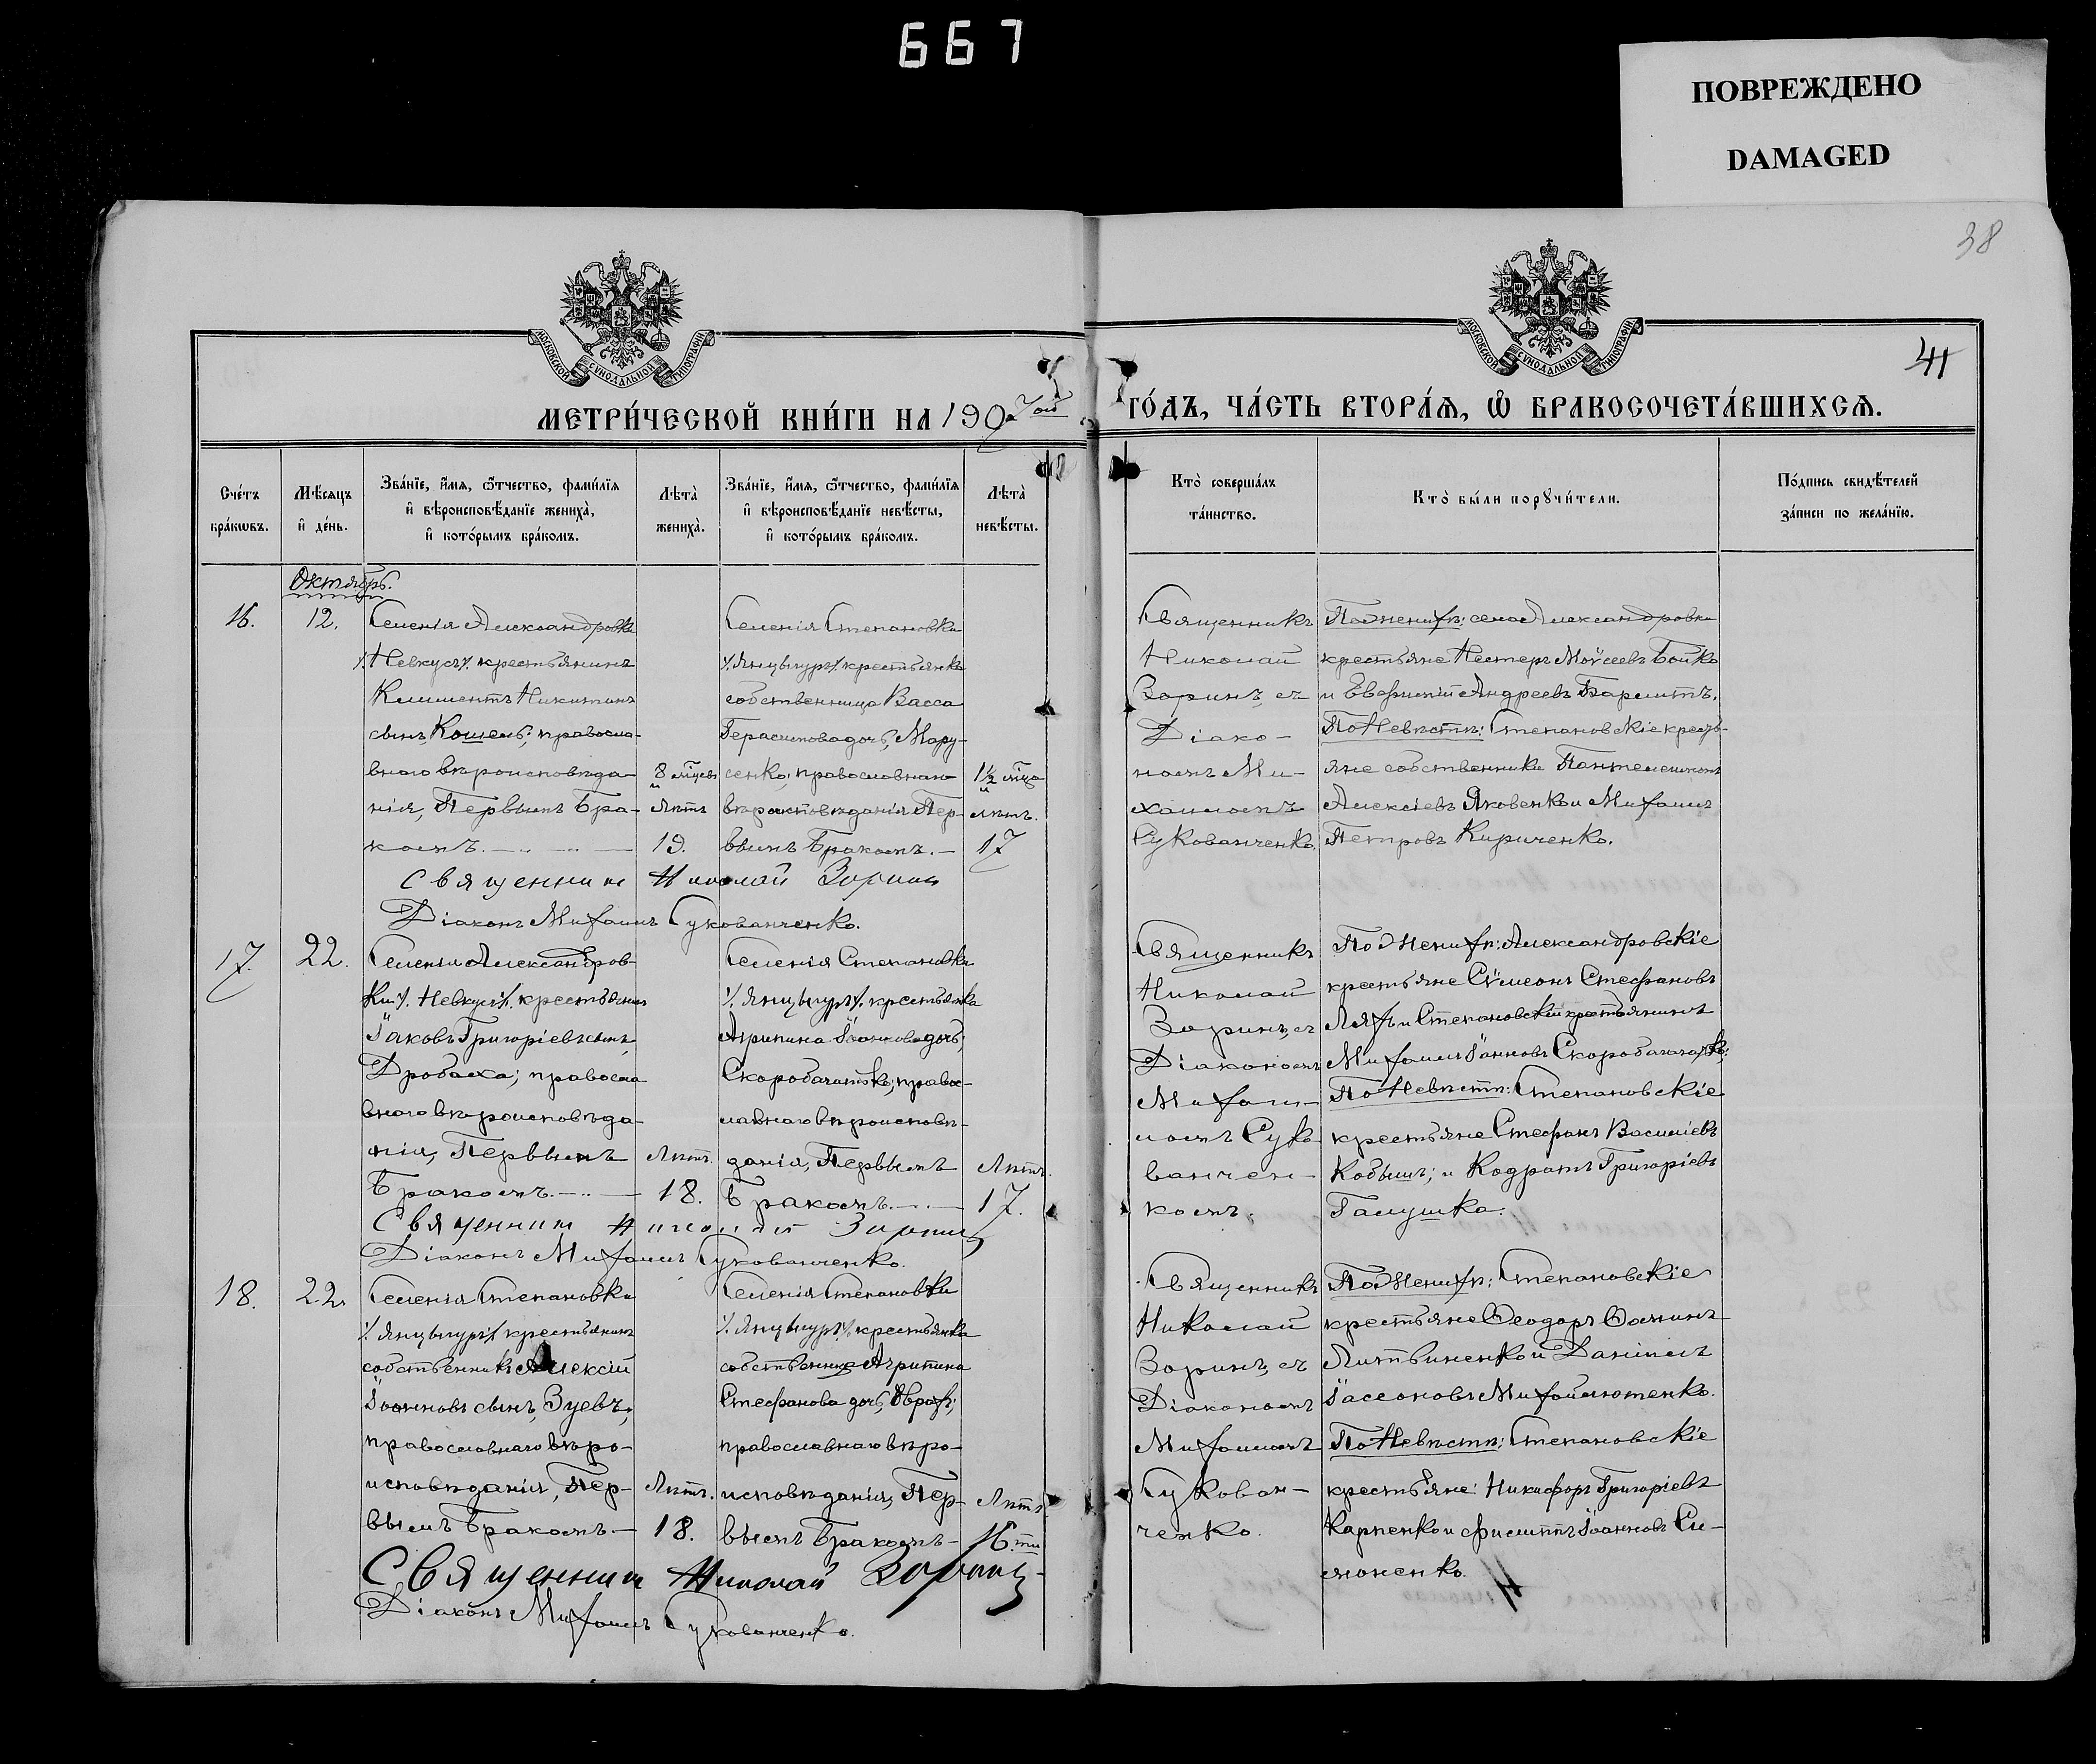 667
ПОВРЕЖДЕНО
DAMAGED
38
МОСКОВСКОЙ СѴНОДАЛЬНОЙ ТИПОГРАФІИ
МОСКОВСКОЙ СѴНОДАЛЬНОЙ ТИПОГРАФІИ
41
МЕТРИ́ЧЕСКОЙ КНИ́ГИ НА 1907 ой
ГО́ДЪ, ЧА́СТЬ ВТОРА́Я, Ѽ БРАКОСОЧЕТА́ВШИХСЯ.
Сче́тъ
бра́кѡвъ.
Мѣ́сяцъ
и де́нь.
Зва́нїе, и́мя, ѻ҆́тчество, фами́лїя
и вѣроисповѣ́данїе жениха̀,
и кото́рымъ бра́комъ.
Лѣта̀
жениха̀.
Зва́нїе, и́мя, ѻ҆́тчество, фами́лїя
и вѣроисповѣ́данїе невѣ́сты,
и кото́рымъ бра́комъ.
Лѣта̀
невѣ́сты.
Кто̀ соверша́лъ
та́инство.
Кто̀ бы́ли порꙋчи́тели.
По́дпись свидѣ́телей
за́писи по жела́нїю.
Октябрь.
16.
12.
Селенія Александровки
Невкусъ крестьянинъ
Климентъ Никитинъ
сынъ, Кошель; правосла-
внаго вѣроисповѣда-
нія, Первымъ Бра-
комъ.
8 мѣсцевъ
и
Лѣтъ
19.
Селенія Степановки
Янцыгуръ крестьянка
собственница Васса
Герасимова дочь, Мару-
сенко, православнаго
вѣроисповѣданія Пер-
вымъ Бракомъ.
1½ мѣца
и
лѣтъ.
17
Священникъ
Николай
Зоринъ, съ
Діако-
номъ Ми-
хаиломъ
Сукованченко.
По Жениху: села Александровки
крестьяне Нестеръ Моѵсеевъ Бойко
и Евфимій Андреевъ
По Невѣстѣ: Степановскіе кресть-
яне собственники Пантелеимонъ
Алексіевъ Яковенко и Михаилъ
Петровъ Кириченко.
Священникъ Николай Зоринъ
Діаконъ Михаилъ Сукованченко.
17.
22.
Селенія Александров-
ки Невкусъ крестьянинъ
Іаковъ Григоріевъ сынъ,
Дробаха; правосла-
внаго вѣроисповѣда-
нія, Первымъ
Бракомъ.
Лѣтъ.
18.
Селенія Степановки
Янцыгуръ крестьянка
Агрипина Іоаннова дочь,
Скоробагатько; правос-
лавнаго вѣроисповѣ-
данія, Первымъ
Бракомъ.
Лѣтъ.
17.
Священникъ
Николай
Зоринъ, съ
Діакономъ
Михаи-
ломъ Суко-
ванчен-
комъ.
По Жениху: Александровскіе
крестьяне Сѵмеонъ Стефановъ
Ляхъ и Степановскій крестьянинъ
Михаилъ Іоанновъ Скоробагатько;
По Невѣстѣ: Степановскіе
крестьяне Стефанъ Василіевъ
Кобышъ; и Кодратъ Григоріевъ
Галушка.
Священникъ Николай Зоринъ
Діаконъ Михаилъ Сукованченко.
18.
22.
Селенія Степановки
Янцыгуръ крестьянинъ
собственникъ Алексій
Іоанновъ сынъ, Зуевъ,
православнаго вѣро-
исповѣданія, Пер-
вымъ Бракомъ
Лѣтъ.
18.
Селенія Степановки
Янцыгуръ крестьянка
собственница Агрипина
Стефанова дочь,
православнаго вѣро-
исповѣданія, Пер-
вымъ Бракомъ
Лѣтъ
16.ти
Священникъ
Николай
Зоринъ, съ
Діакономъ
Михаиломъ
Сукован-
ченко.
По Жениху: Степановскіе
крестьяне Ѳеодоръ Ѳоминъ
Литвиненко и Даніилъ
Іассоновъ Михайлютенко.
По Невѣстѣ: Степановскіе
крестьяне: Никифоръ Григоріевъ
Карпенко и Филиппъ Іоанновъ Си-
моненко.
Священникъ Николай Зоринъ
Діаконъ Михаилъ Сукованченко.